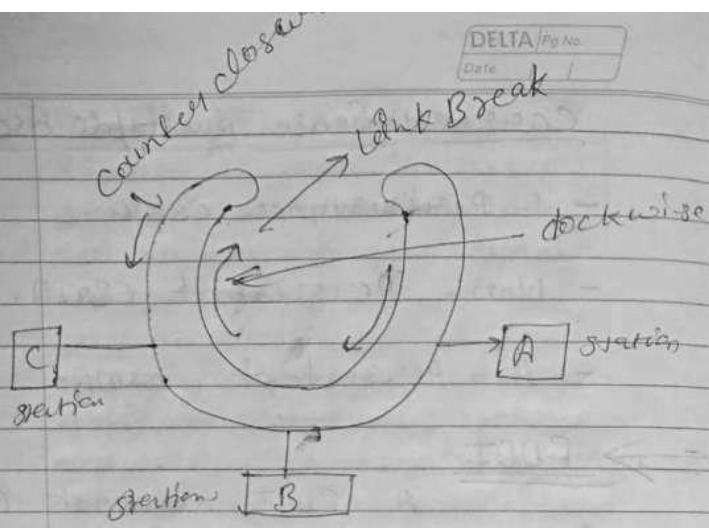 DELTA Pg No.
Date / /
Counter closewise
Link Break
clockwise
C
station
A station
station B